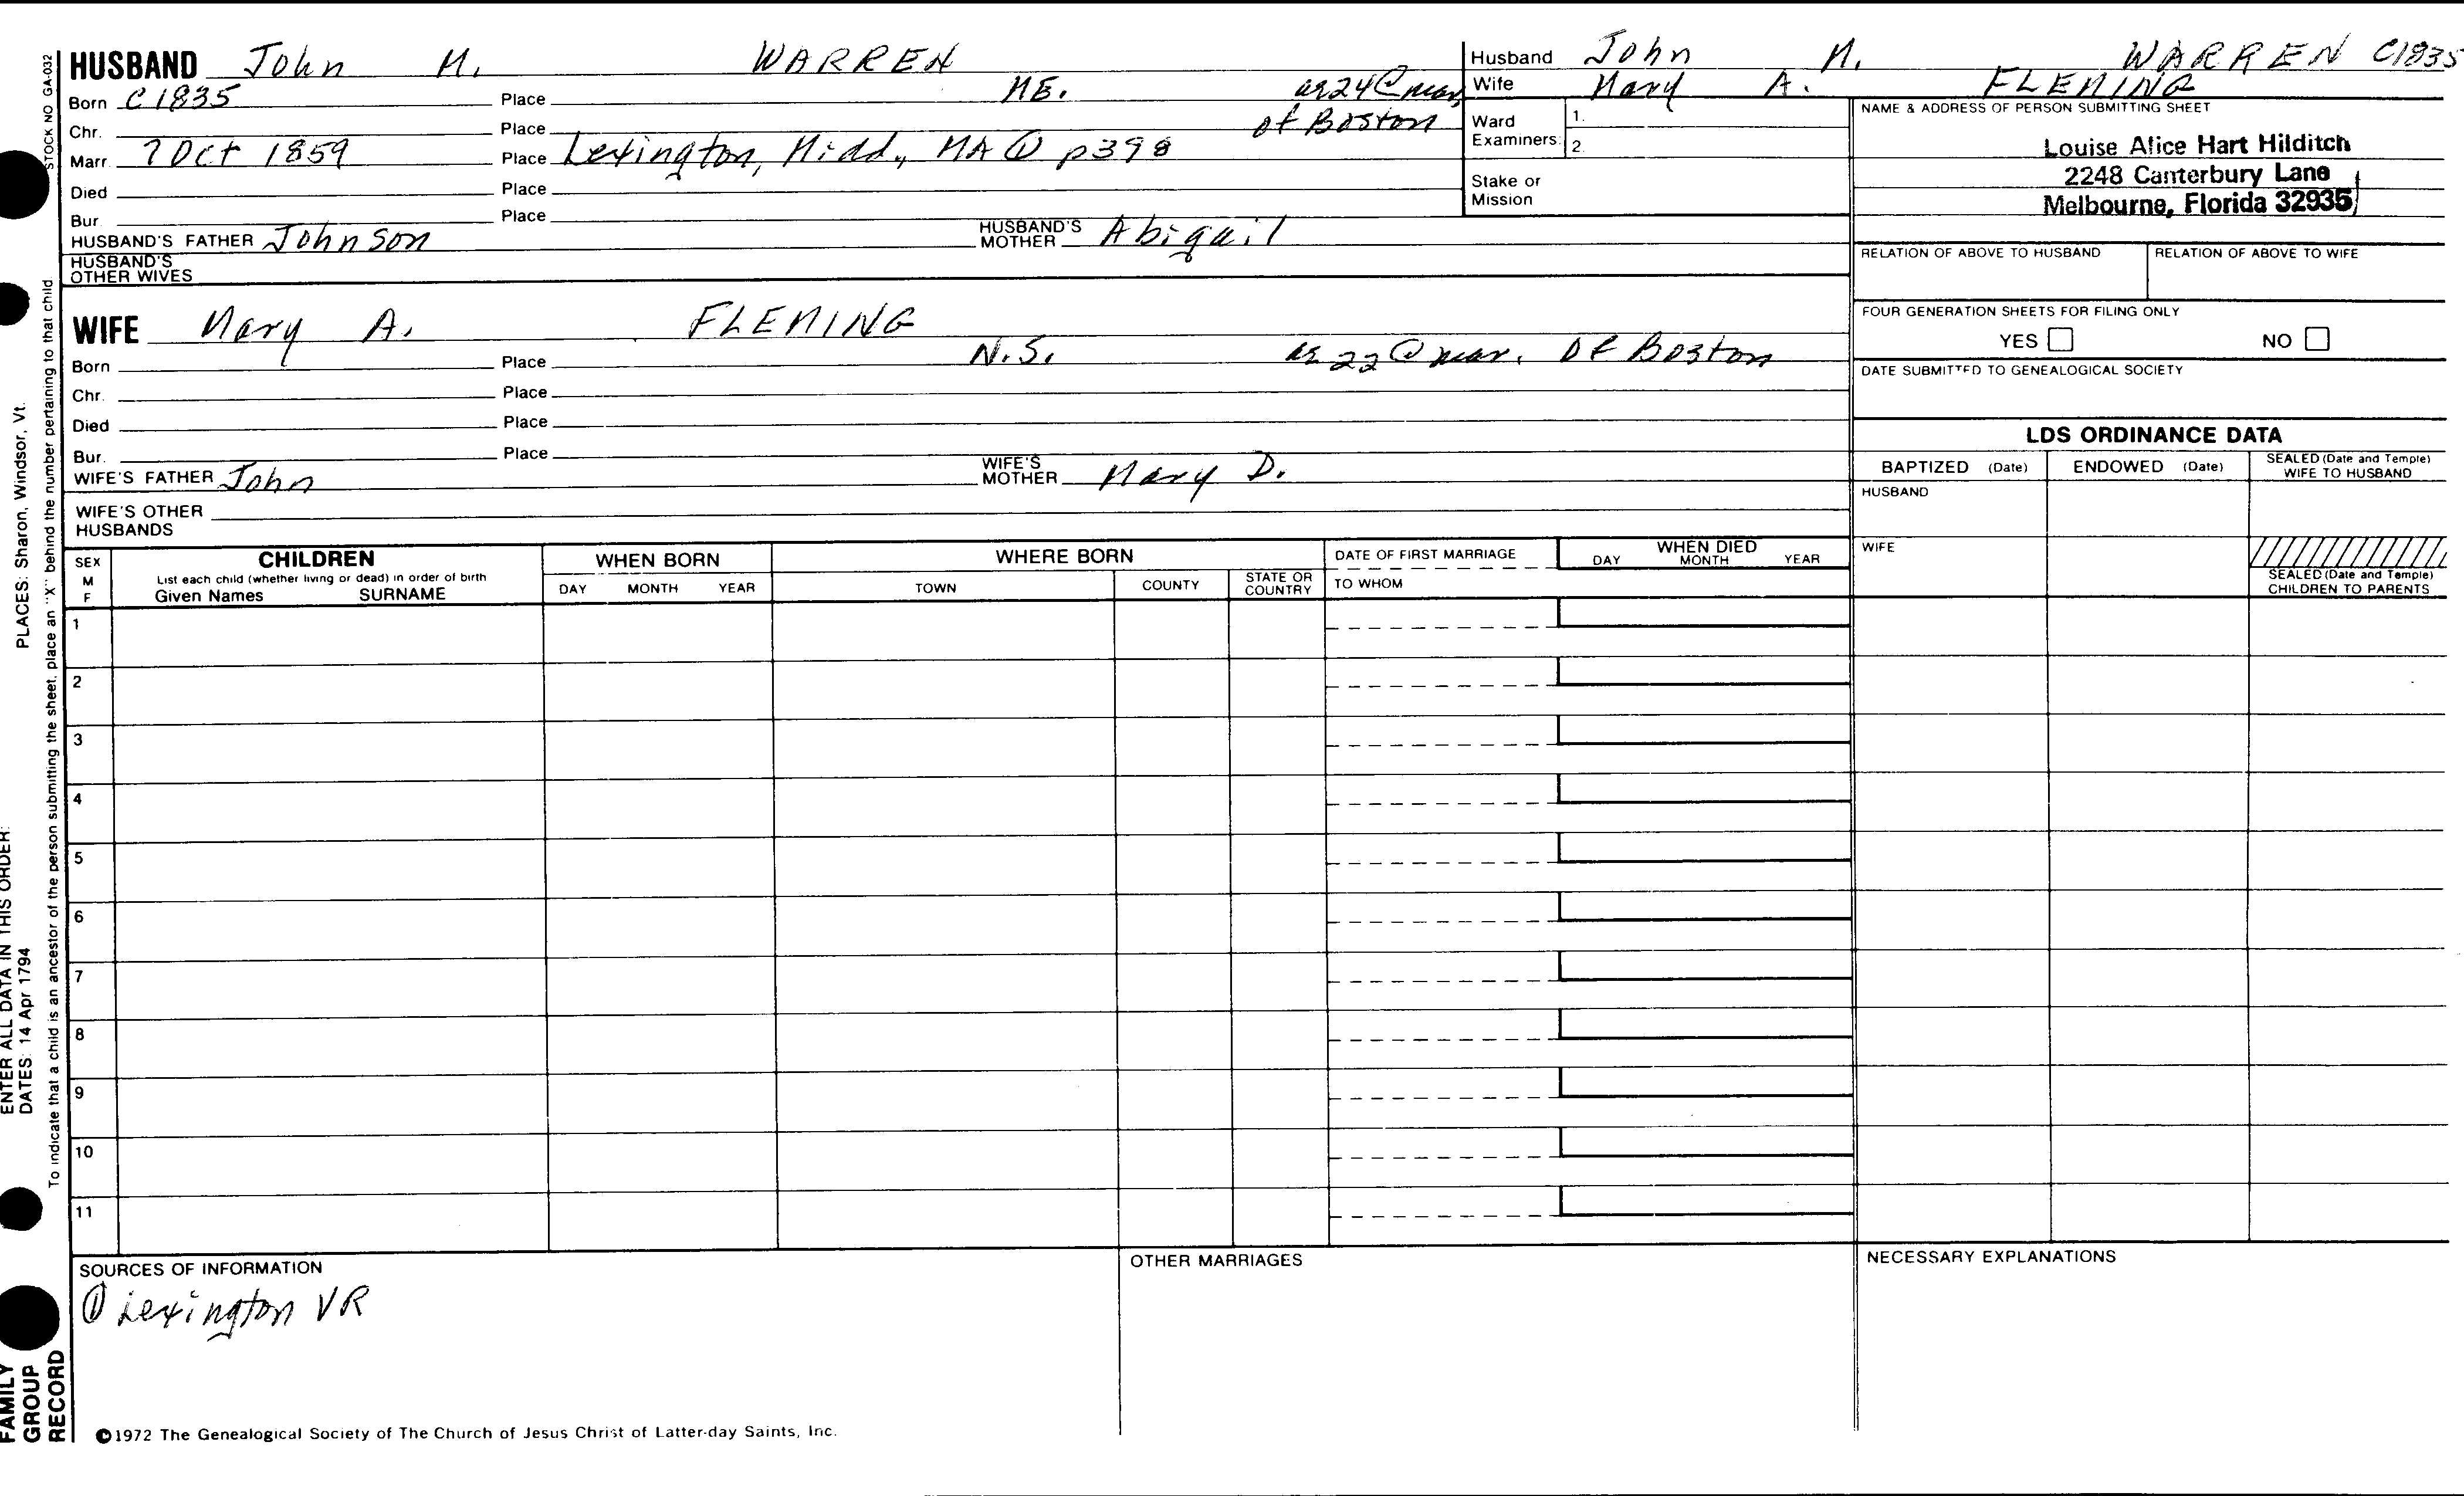 HUSBAND John M. WARREN
Born C 1835 Place ME. as 24 @ mar,
Chr. Place of Boston
Marr. 7 Oct 1859 Place Lexington, Midd., MA ① p398
Died Place
Bur. Place
HUSBAND'S FATHER Johnson HUSBAND'S MOTHER Abigail
HUSBAND'S OTHER WIVES
WIFE Mary A. FLEMING
Born Place N.S. as 22 @ mar. of Boston
Chr. Place
Died Place
Bur. Place
WIFE'S FATHER John WIFE'S MOTHER Mary D.
WIFE'S OTHER HUSBANDS
Husband John M. WARREN C1835
Wife Mary A. FLEMING
Ward Examiners: 1.
2.
Stake or Mission
NAME & ADDRESS OF PERSON SUBMITTING SHEET
Louise Alice Hart Hilditch
2248 Canterbury Lane
Melbourne, Florida 32935
RELATION OF ABOVE TO HUSBAND RELATION OF ABOVE TO WIFE
FOUR GENERATION SHEETS FOR FILING ONLY
YES NO
DATE SUBMITTED TO GENEALOGICAL SOCIETY
LDS ORDINANCE DATA
BAPTIZED (Date) ENDOWED (Date) SEALED (Date and Temple) WIFE TO HUSBAND
HUSBAND
WIFE
SEALED (Date and Temple) CHILDREN TO PARENTS
SEX M F
CHILDREN
List each child (whether living or dead) in order of birth
Given Names SURNAME
WHEN BORN
DAY MONTH YEAR
WHERE BORN
TOWN COUNTY STATE OR COUNTRY
DATE OF FIRST MARRIAGE
TO WHOM
WHEN DIED
DAY MONTH YEAR
1
2
3
4
5
6
7
8
9
10
11
SOURCES OF INFORMATION
① Lexington VR
OTHER MARRIAGES
NECESSARY EXPLANATIONS
©1972 The Genealogical Society of The Church of Jesus Christ of Latter-day Saints, Inc.
STOCK NO GA-032
To indicate that a child is an ancestor of the person submitting the sheet, place an "X" behind the number pertaining to that child.
ENTER ALL DATA IN THIS ORDER:
DATES: 14 Apr 1794 PLACES: Sharon, Windsor, Vt.
FAMILY
GROUP
RECORD